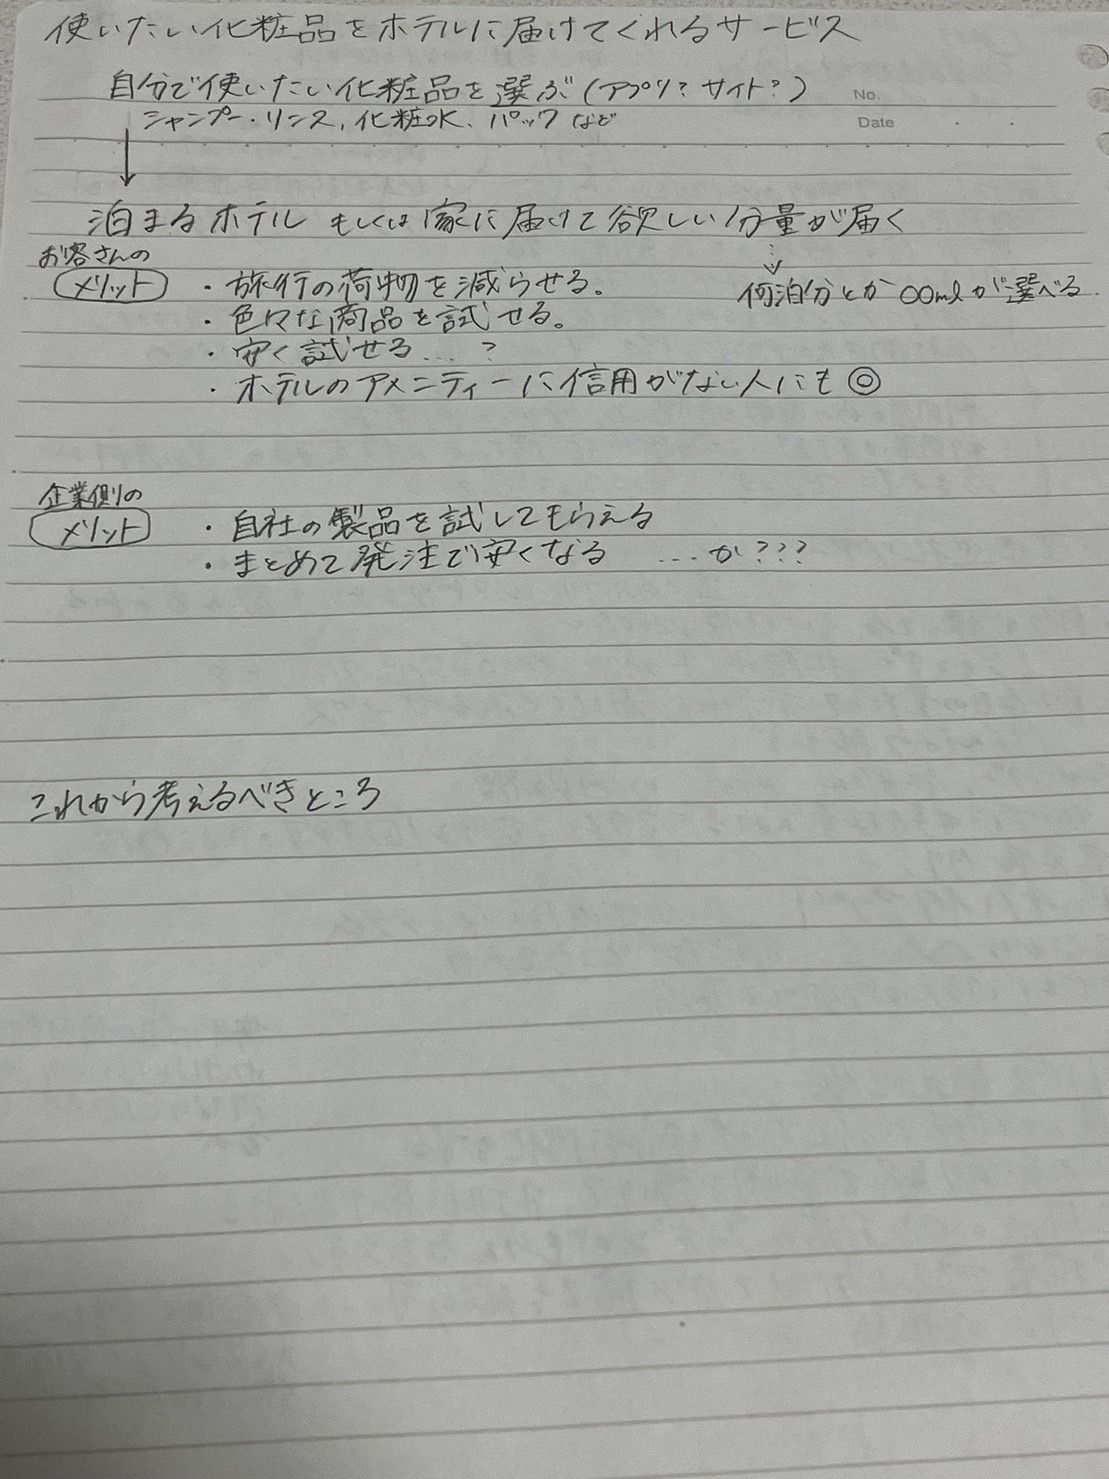 使いたい化粧品をホテルに届けてくれるサービス
自分で使いたい化粧品を選ぶ(アプリ?サイト?)
No.
シャンプー・リンス、化粧水、パックなど
Date
泊まるホテルもしくは家に届けて欲しい分量が届く
お客さんの
メリット
・旅行の荷物を減らせる。
何泊分とか○○mlが選べる
・色々な商品を試せる。
・安く試せる…?
・ホテルのアメニティーに信用がない人にも◎
企業側の
メリット
・自社の製品を試してもらえる
・まとめて発注で安くなる …か???
これから考えるべきところ